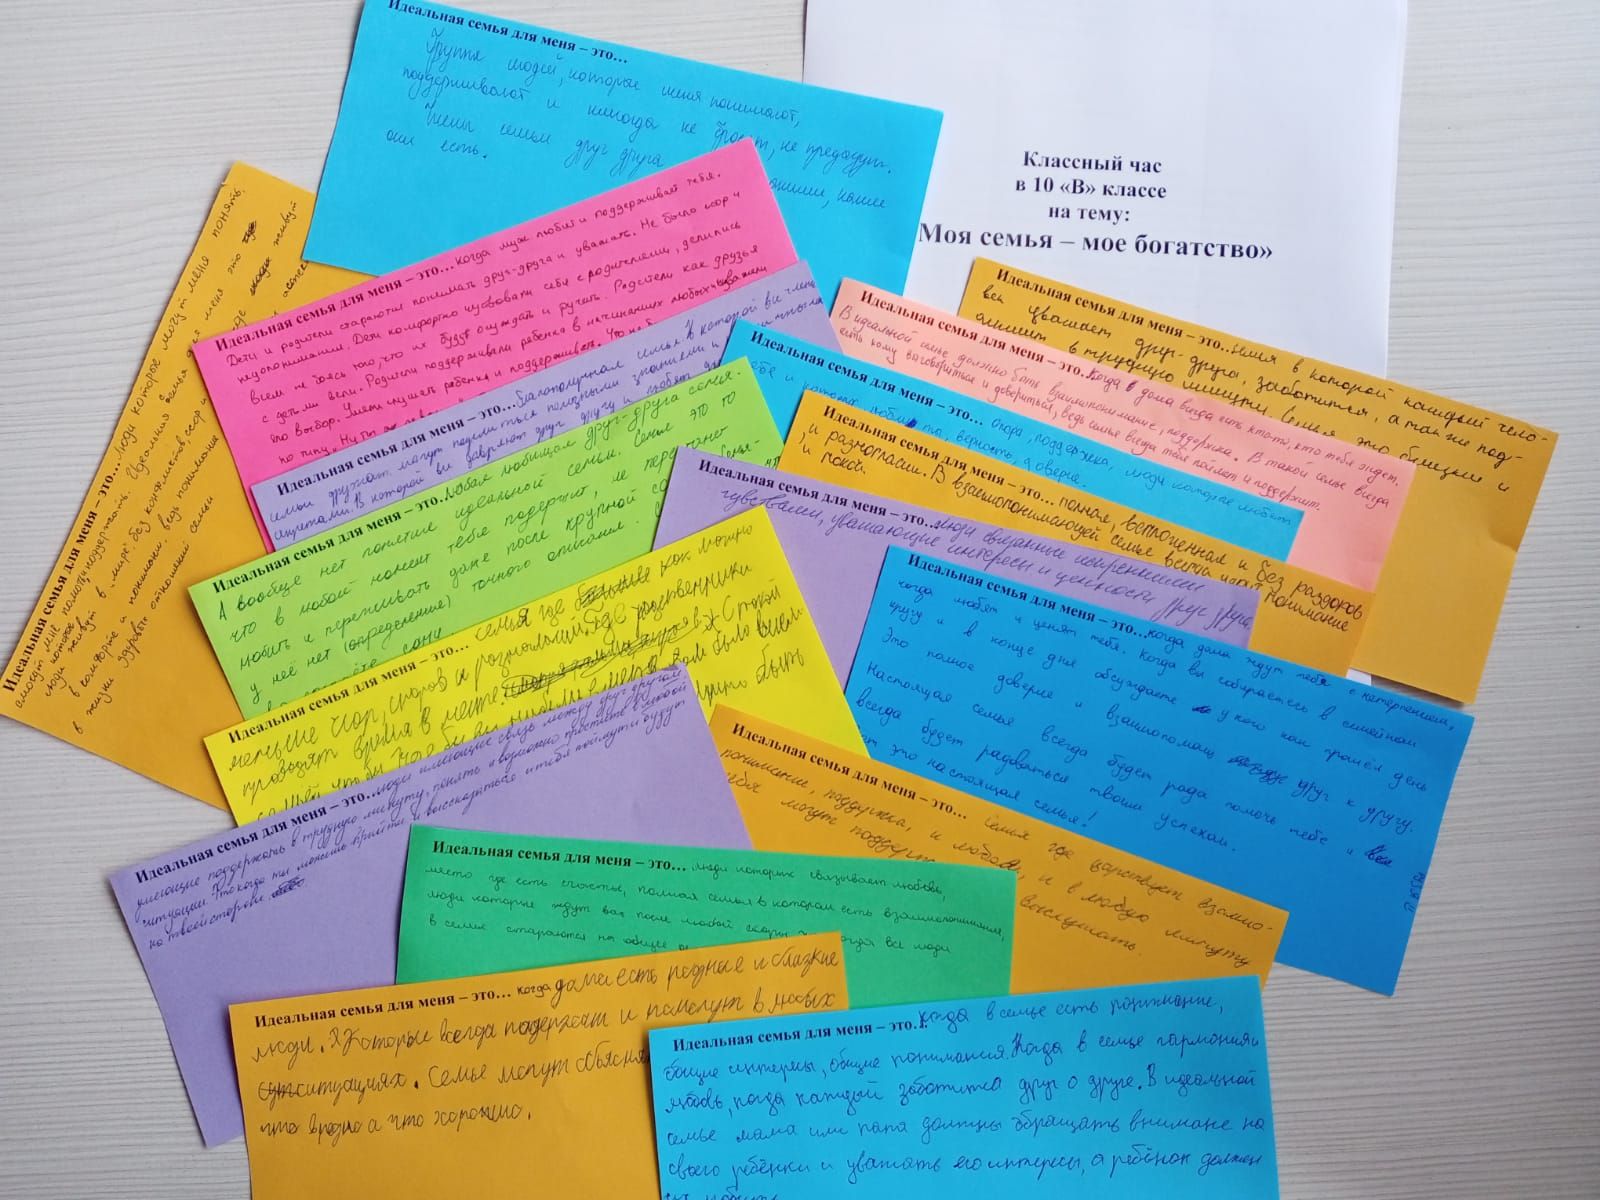 Идеальная семья для меня – это...
Группа людей, которые меня понимают,
поддерживают и никогда не бросят, не предадут.
Члены семьи друг друга
они есть.
Классный час
в 10 «В» классе
на тему:
Моя семья – мое богатство»
Идеальная семья для меня – это... Люди которые могут меня понять,
смогут мне помочь, поддержать. Идеальная семья для меня это
люди которые живут в "мире" без конфликтов, ссор и
в комфорте и понимании, ведь понимание
в жизни здоровые отношения семьи
Идеальная семья для меня – это... когда муж любит и поддерживает тебя.
Дети и родители стараются понимать друг-друга и уважать. Не было ссор и
недопонимания. Дети комфортно чувствовали себя с родителями, делились
всем не боясь того, что их будут осуждать и ругать. Родители как друзья
с детьми вели. Родители поддерживали ребенка в начинаниях любых и уважали
его выбор. Умели слушать ребенка и поддерживать.
Идеальная семья для меня – это... благополучная семья. В которой все члены
семьи дружат, могут поделиться полезными знаниями и
секретами. В которой все доверяют друг другу и любят
Идеальная семья для меня – это... любая любящая друг-друга семья.
А вообще нет понятие идеальной семьи. Семье это то
что в любой момент тебя подержит, не перестанет
любить и переживать даже после крупной
у неё нет (определение) точного описания.
Идеальная семья для меня – это... семья где как можно
меньше ссор, споров и разногласий. Где родственники
проводят время в месте С такой
семьёй чтобы
Идеальная семья для меня – это... люди имеющие связь между друг другом,
умеющие поддержать в трудную минуту, понять и возможно простить в любой
ситуации. Это когда ты можешь прийти и высказаться и тебя поймут и будут
на твоей стороне.
Идеальная семья для меня – это... люди которых связывает любовь,
место где есть счастье, полная семья в котором есть взаимопонимание,
люди которые ждут вас после любой ссоры когда все люди
в семье стараются на общее
Идеальная семья для меня – это... когда дома есть родные и близкие
люди. Которые всегда подержат и помогут в любых
ситуациях. Семье могут объяснять
что вредно а что хорошо.
Идеальная семья для меня – это... Семья в которой каждый чело-
век уважает друг-друга, заботится, а так же под-
Семья это близкие и
Идеальная семья для меня – это... Когда дома всегда есть кто то, кто тебя ждет.
В идеальной семье должно быть взаимопонимание, поддержка. В такой семье всегда
есть кому выговориться и довериться, ведь семья всегда тебя поймет и поддержит.
Идеальная семья для меня – это... опора, поддержка, люди которые любят
верность, доверие.
Идеальная семья для меня – это... полная, встроенная и без раздоров
и разногласии. В взаимопонимающей семье всегда царит понимание
и покой.
Идеальная семья для меня – это... люди связанные искренними
чувствами, уважающие интересы и ценности друг друга
Идеальная семья для меня – это... когда дома ждут тебя с нетерпением,
когда любят и ценят тебя. Когда вы собираетесь в семейном
кругу и в конце дня обсуждаете у кого как прошёл день
Это полное доверие и взаимопомощь друг к другу.
Настоящая семья всегда будет рада помочь тебе и
всегда будет радоваться твоим успехам.
это настоящая семья!
Идеальная семья для меня – это... семья где царствует взаимо-
понимание, поддержка, и любовь, и в любую минуту
тебя могут поддержать выслушать.
Идеальная семья для меня – это... когда в семье есть понимание,
общие интересы, общие понимания. Когда в семье гармония и
любовь, когда каждый заботится друг о друге. В идеальной
семье мама или папа должны обращать внимане на
своего ребёнки и уважать его интересы, а ребёнок должен